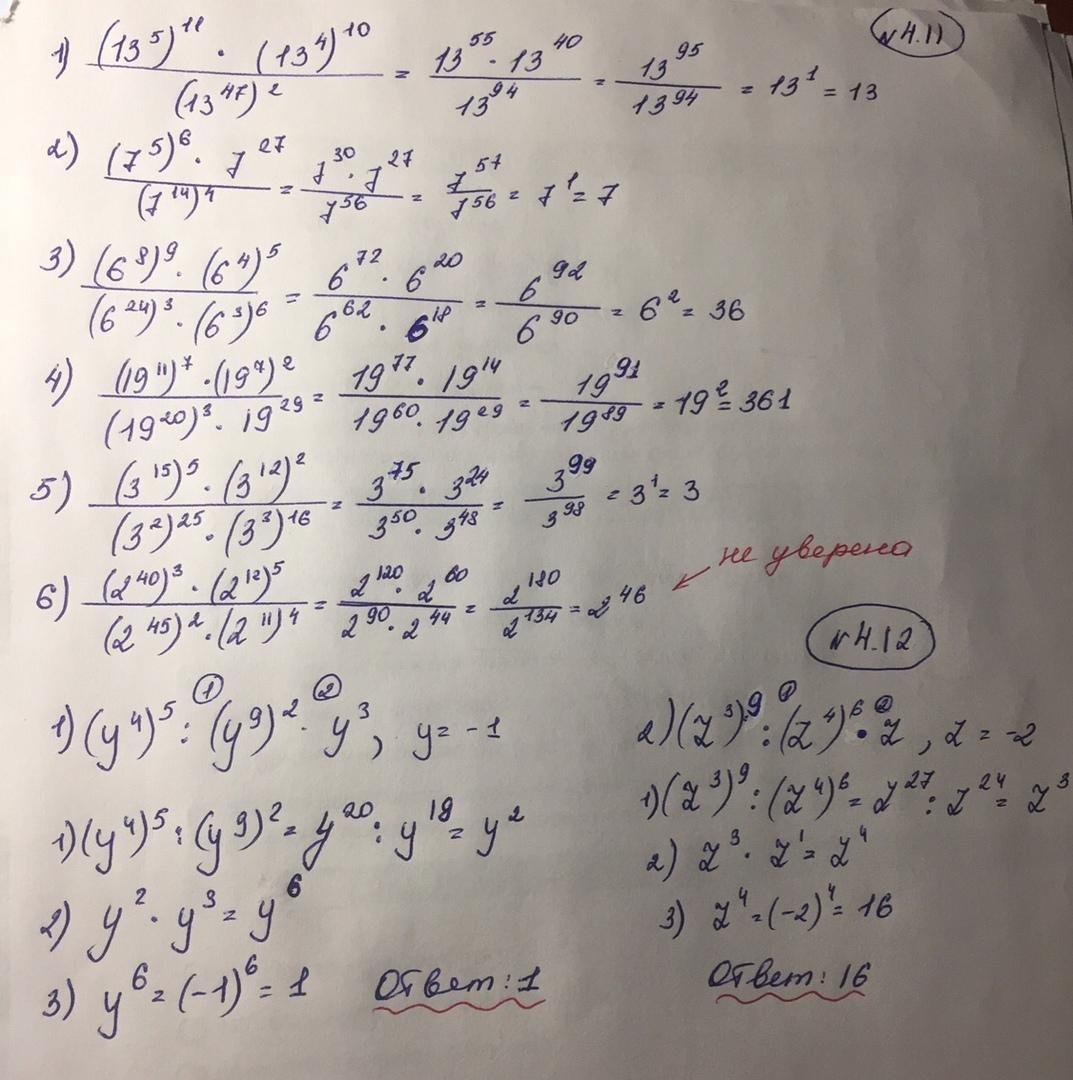 №4.11
1) ((13^5)^11 · (13^4)^10)/((13^47)^2) = (13^55 · 13^40)/(13^94) = 13^95/13^94 = 13^1 = 13
2) ((7^5)^6 · 7^27)/((7^14)^4) = (7^30 · 7^27)/(7^56) = 7^57/7^56 = 7^1 = 7
3) ((6^8)^9 · (6^4)^5)/((6^24)^3 · (6^3)^6) = (6^72 · 6^20)/(6^62 · 6^18) = 6^92/6^90 = 6^2 = 36
4) ((19^11)^7 · (19^7)^2)/((19^20)^3 · 19^29) = (19^77 · 19^14)/(19^60 · 19^29) = 19^91/19^89 = 19^2 = 361
5) ((3^15)^5 · (3^12)^2)/((3^2)^25 · (3^3)^16) = (3^75 · 3^24)/(3^50 · 3^48) = 3^99/3^98 = 3^1 = 3
6) ((2^40)^3 · (2^12)^5)/((2^45)^2 · (2^11)^4) = (2^120 · 2^60)/(2^90 · 2^44) = 2^180/2^134 = 2^46 ← не уверена
№4.12
① ②
1) (y^4)^5 : (y^9)^2 · y^3, y = -1
1) (y^4)^5 : (y^9)^2 = y^20 : y^18 = y^2
2) y^2 · y^3 = y^6
3) y^6 = (-1)^6 = 1
Ответ: 1
① ②
2) (z^3)^9 : (z^4)^6 · z, z = -2
1) (z^3)^9 : (z^4)^6 = z^27 : z^24 = z^3
2) z^3 · z^1 = z^4
3) z^4 = (-2)^4 = 16
Ответ: 16